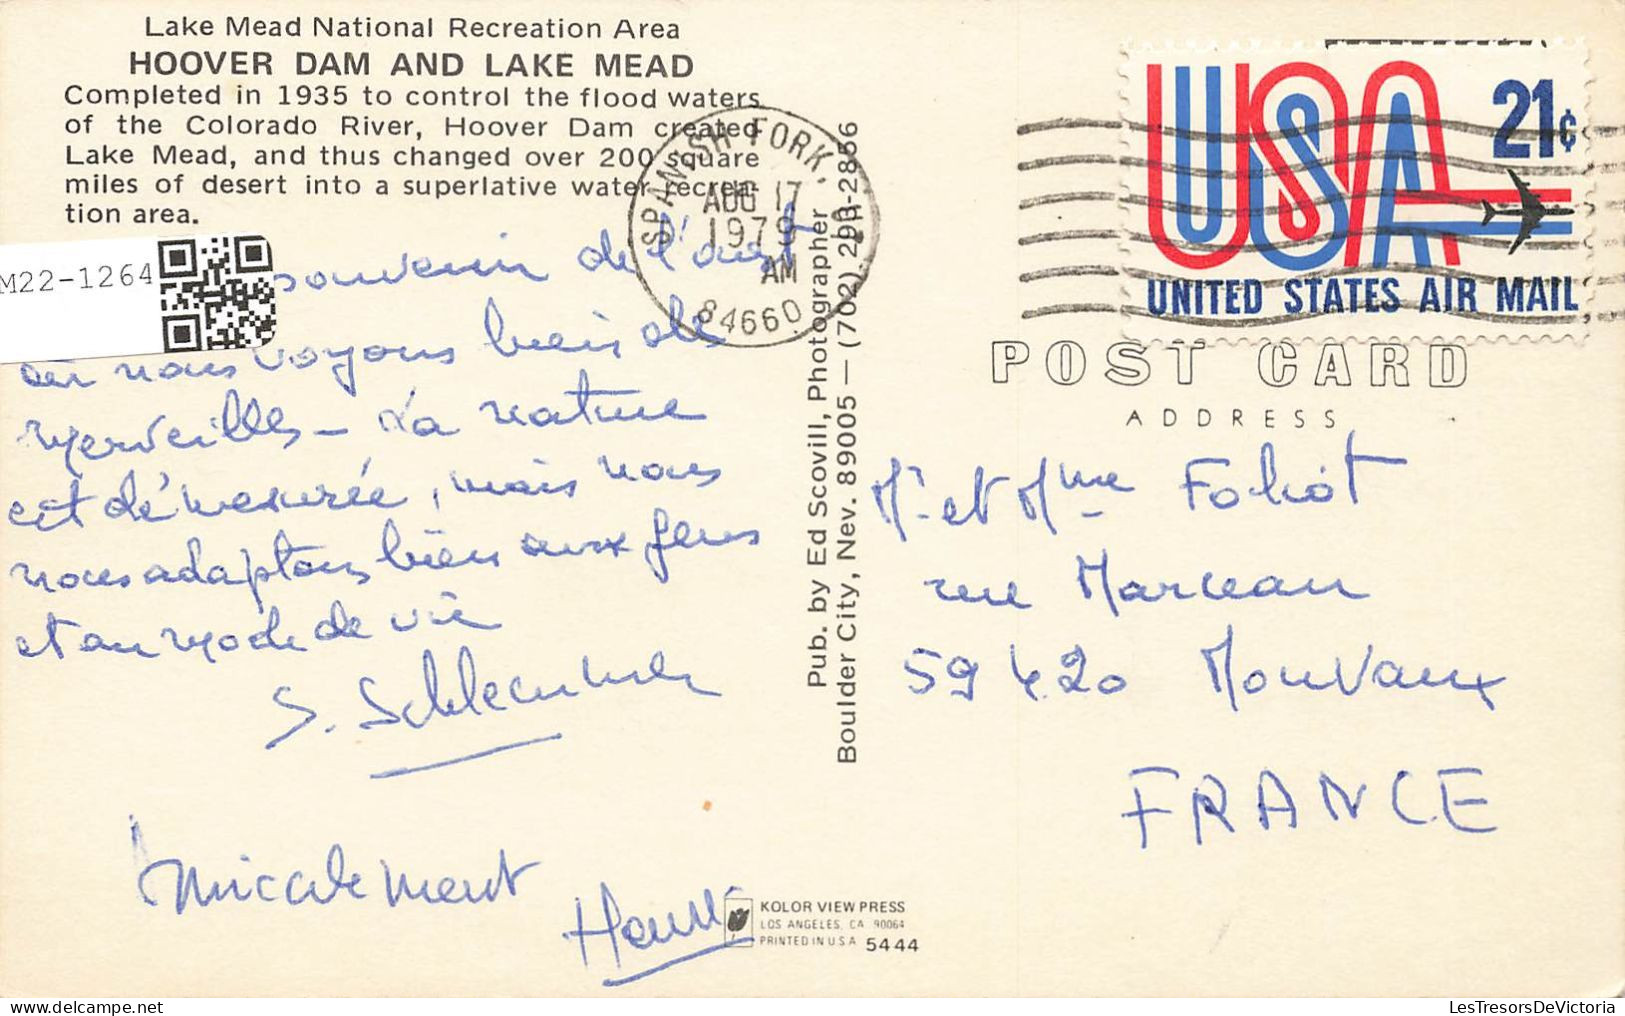 Lake Mead National Recreation Area
HOOVER DAM AND LAKE MEAD
Completed in 1935 to control the flood waters
of the Colorado River, Hoover Dam created
Lake Mead, and thus changed over 200 square
miles of desert into a superlative water recrea-
tion area.
M22-1264
souvenir de l'ouest
où nous voyons bien des
merveilles - La nature
est démesurée, mais nous
nous adaptons bien aux gens
et au mode de vie
S.
Amicalement
SPANISH FORK,
AUG 17
1979
AM
84660
Pub. by Ed Scovill, Photographer
Boulder City, Nev. 89005 — (702) 293-2856
USA 21¢
UNITED STATES AIR MAIL
POST CARD
ADDRESS
Mr et Mme Foliot
rue Marceau
59420 Mouvaux
FRANCE
KOLOR VIEW PRESS
LOS ANGELES, CA 90064
PRINTED IN U.S.A 5444
LesTresorsDeVictoria